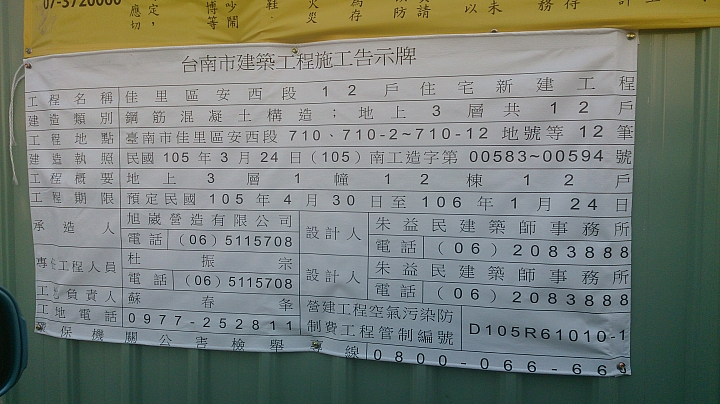 07-3720000
應切 定, 博等 吵鬧 鞋 火災 為存 消防 請 以 未 務 得 計
台南市建築工程施工告示牌
工程名稱 佳里區安西段12戶住宅新建工程
建造類別 鋼筋混凝土構造;地上3層共12戶
工程地點 臺南市佳里區安西段 710、710-2~710-12 地號等 12 筆
建造執照 民國 105 年 3 月 24 日 (105) 南工造字第 00583~00594 號
工程概要 地上3層1幢12棟12戶
工程期限 預定民國 105 年 4 月 30 日至 106 年 1 月 24 日
承造人 旭崴營造有限公司 設計人 朱益民建築師事務所
電話 (06) 5115708 電話 (06) 2083888
專任工程人員 杜振宗 設計人 朱益民建築師事務所
電話 (06) 5115708 電話 (06) 2083888
工地負責人 蘇春夆 營建工程空氣污染防制費工程管制編號 D105R61010-1
工地電話 0977-252811
環保機關公害檢舉專線 0800-066-66